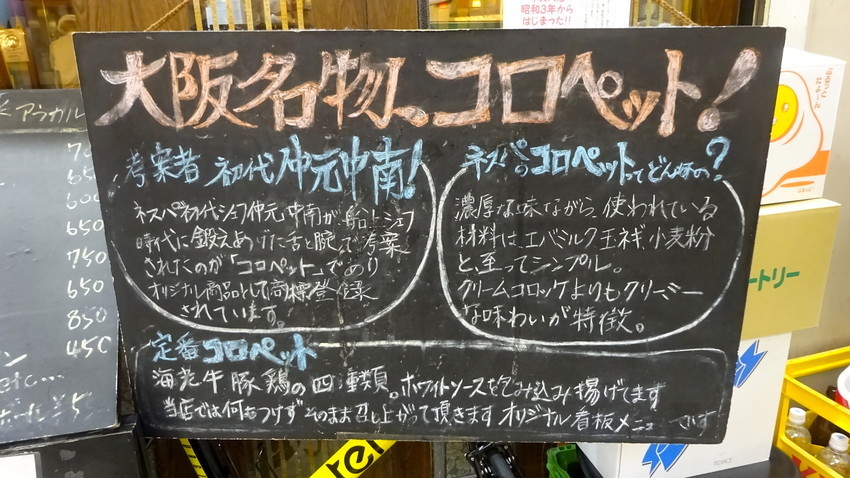 昭和3年から
はじまった!!
大阪名物、コロペット!
考案者 初代 仲元中南!
ネスパ初代シェフ仲元中南が、船上シェフ
時代に鍛えあげた舌と腕で考案
されたのが「コロペット」であり
オリジナル商品として商標登録
されています。
ネスパのコロペットってどんなもの?
濃厚な味ながら、使われている
材料はエバミルク、玉ネギ、小麦粉
と、至ってシンプル。
クリームコロッケよりもクリーミー
な味わいが特徴。
定番コロペット
海老牛豚鶏の四種類。ホワイトソースを包み込み揚げてます
当店では何もつけずそのまま召し上がって頂きます オリジナル看板メニュー
アラカル
650
600
650
750
650
850
450
ートリー